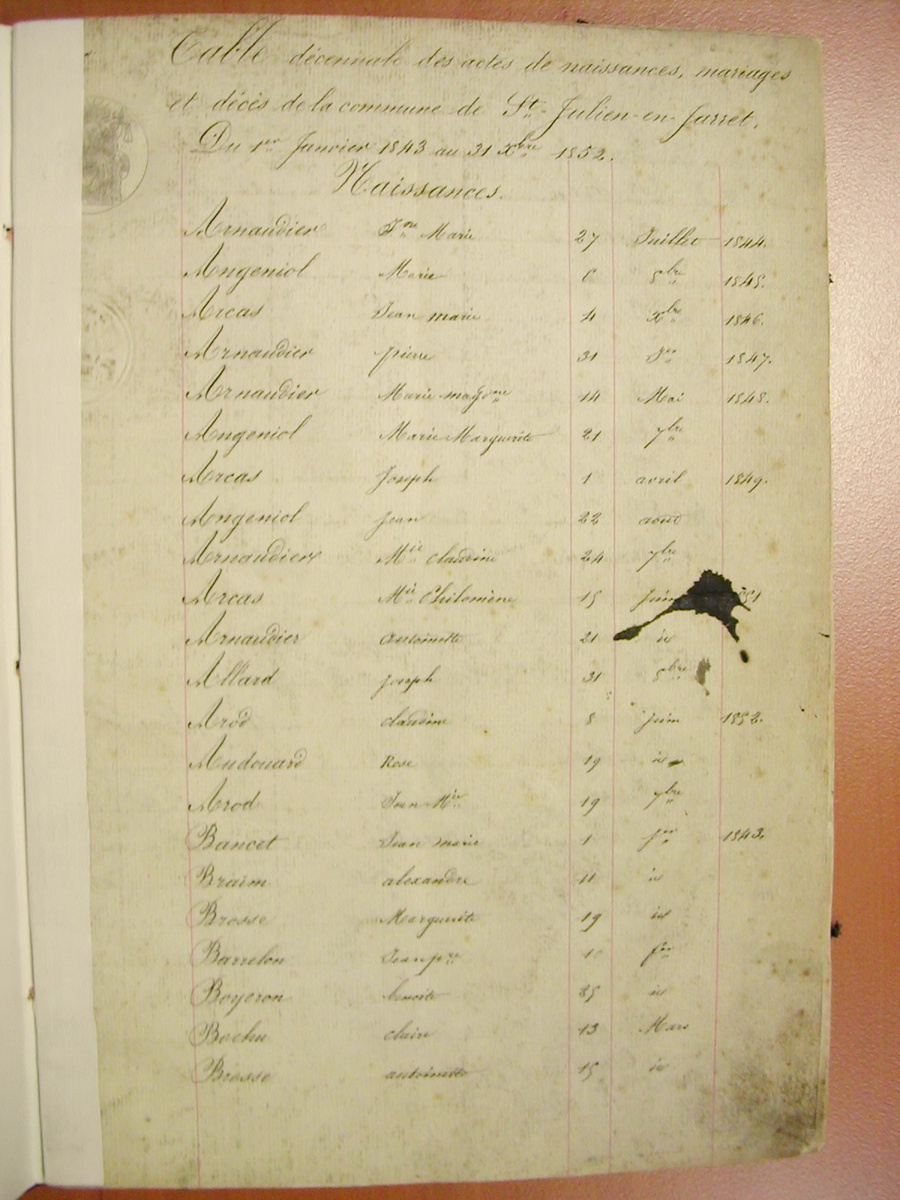 Table décennale des actes de naissances, mariages
et décès de la commune de St Julien-en-Jarret,
Du 1er Janvier 1843 au 31 Xbre 1852.
Naissances.
Arnaudier Marie 27 Juillet 1844.
Angeniol Marie 6 8bre 1845.
Arcas Jean marie 4 Xbre 1846.
Arnaudier pierre 31 Jer 1847.
Arnaudier Marie 14 Mai 1848.
Angeniol Marie Marguerite 21 7bre
Arcas Joseph 1 avril 1849.
Angeniol Jean 22 aout
Arnaudier Mie Claudine 24 7bre
Arcas Mie Philomène 15 Juin
Arnaudier Antoinette 21 id
Allard Joseph 31 8bre
Arod claudine 8 juin 1852.
Audouard Rose 19 id
Arod Jean Mie 19 7bre
Bancet Jean marie 1 jer 1843.
Braim alexandre 11 id
Brosse Marguerite 19 id
Barrelon Jean pre fer
Boyeron benoite id
Bochu claire 13 Mars
Brosse antoinette 15 id